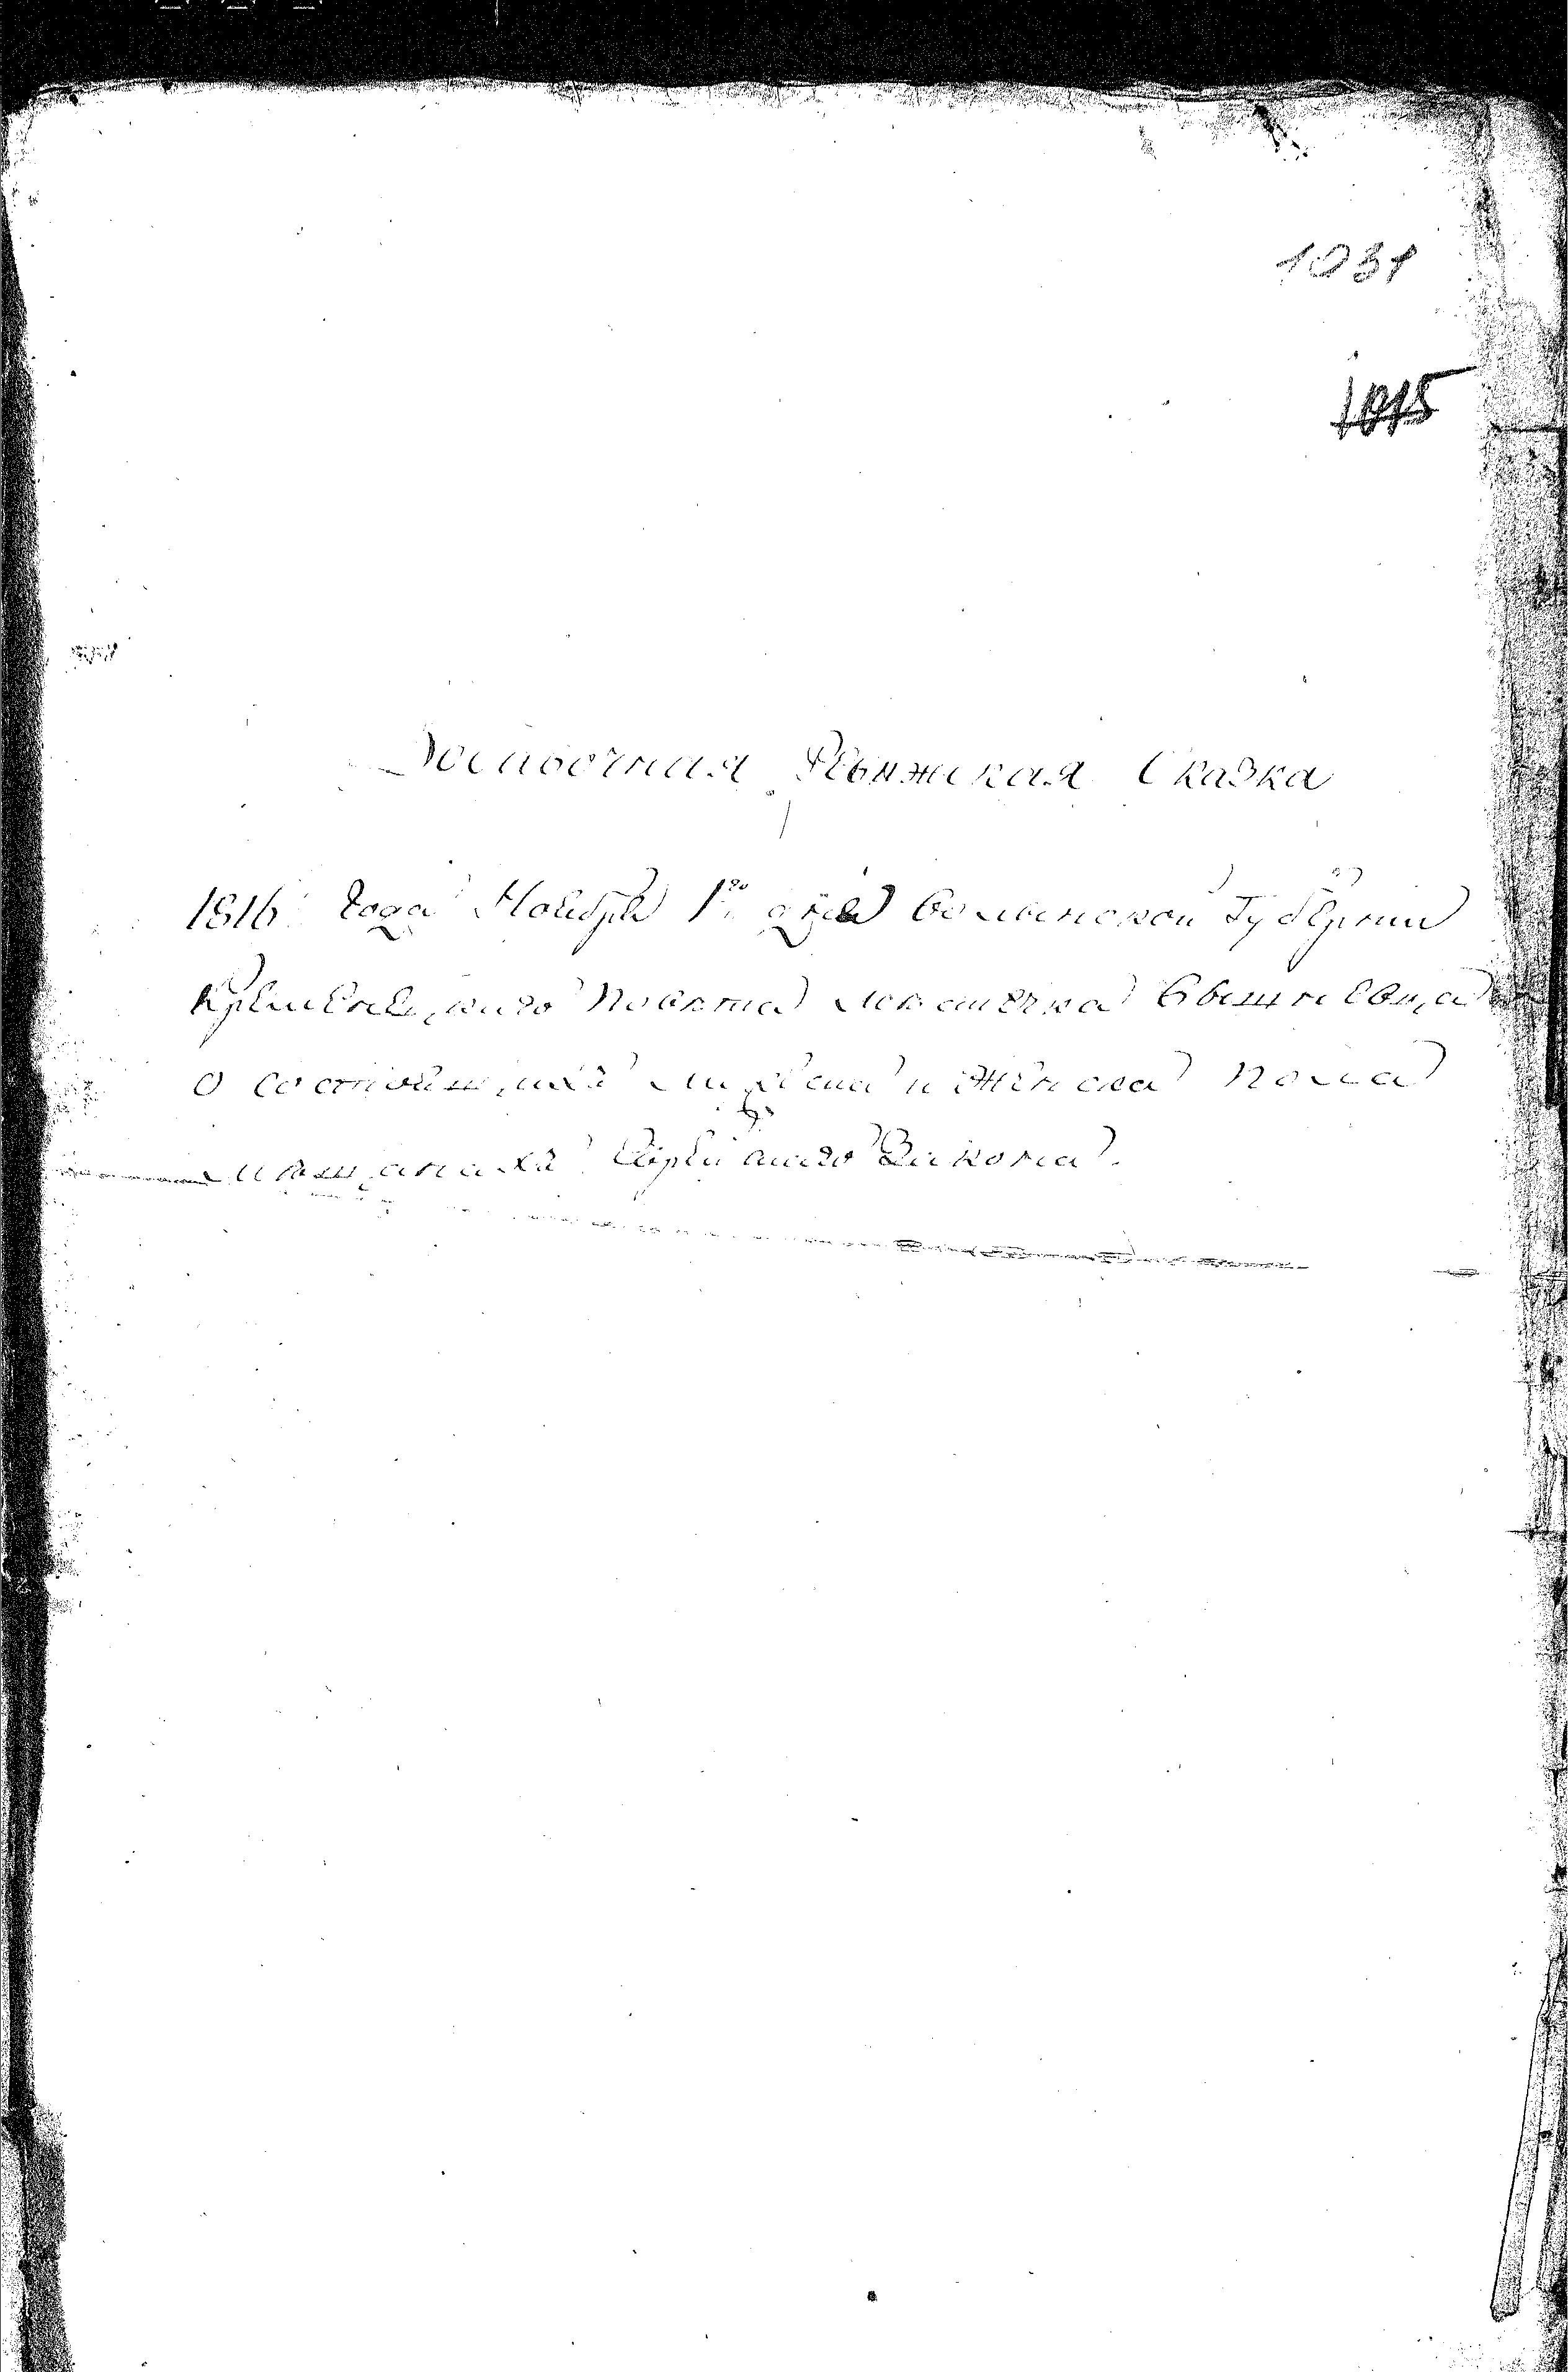 1031
1015
Дополочная Ревижская Сказка
1816 года Ноября 1го дня Волынской Губернии
Кременецкаго Повета местечка Вышневца
О состоящихъ мужеска и Женска пола
мещанахъ Еврейскаго Закона.